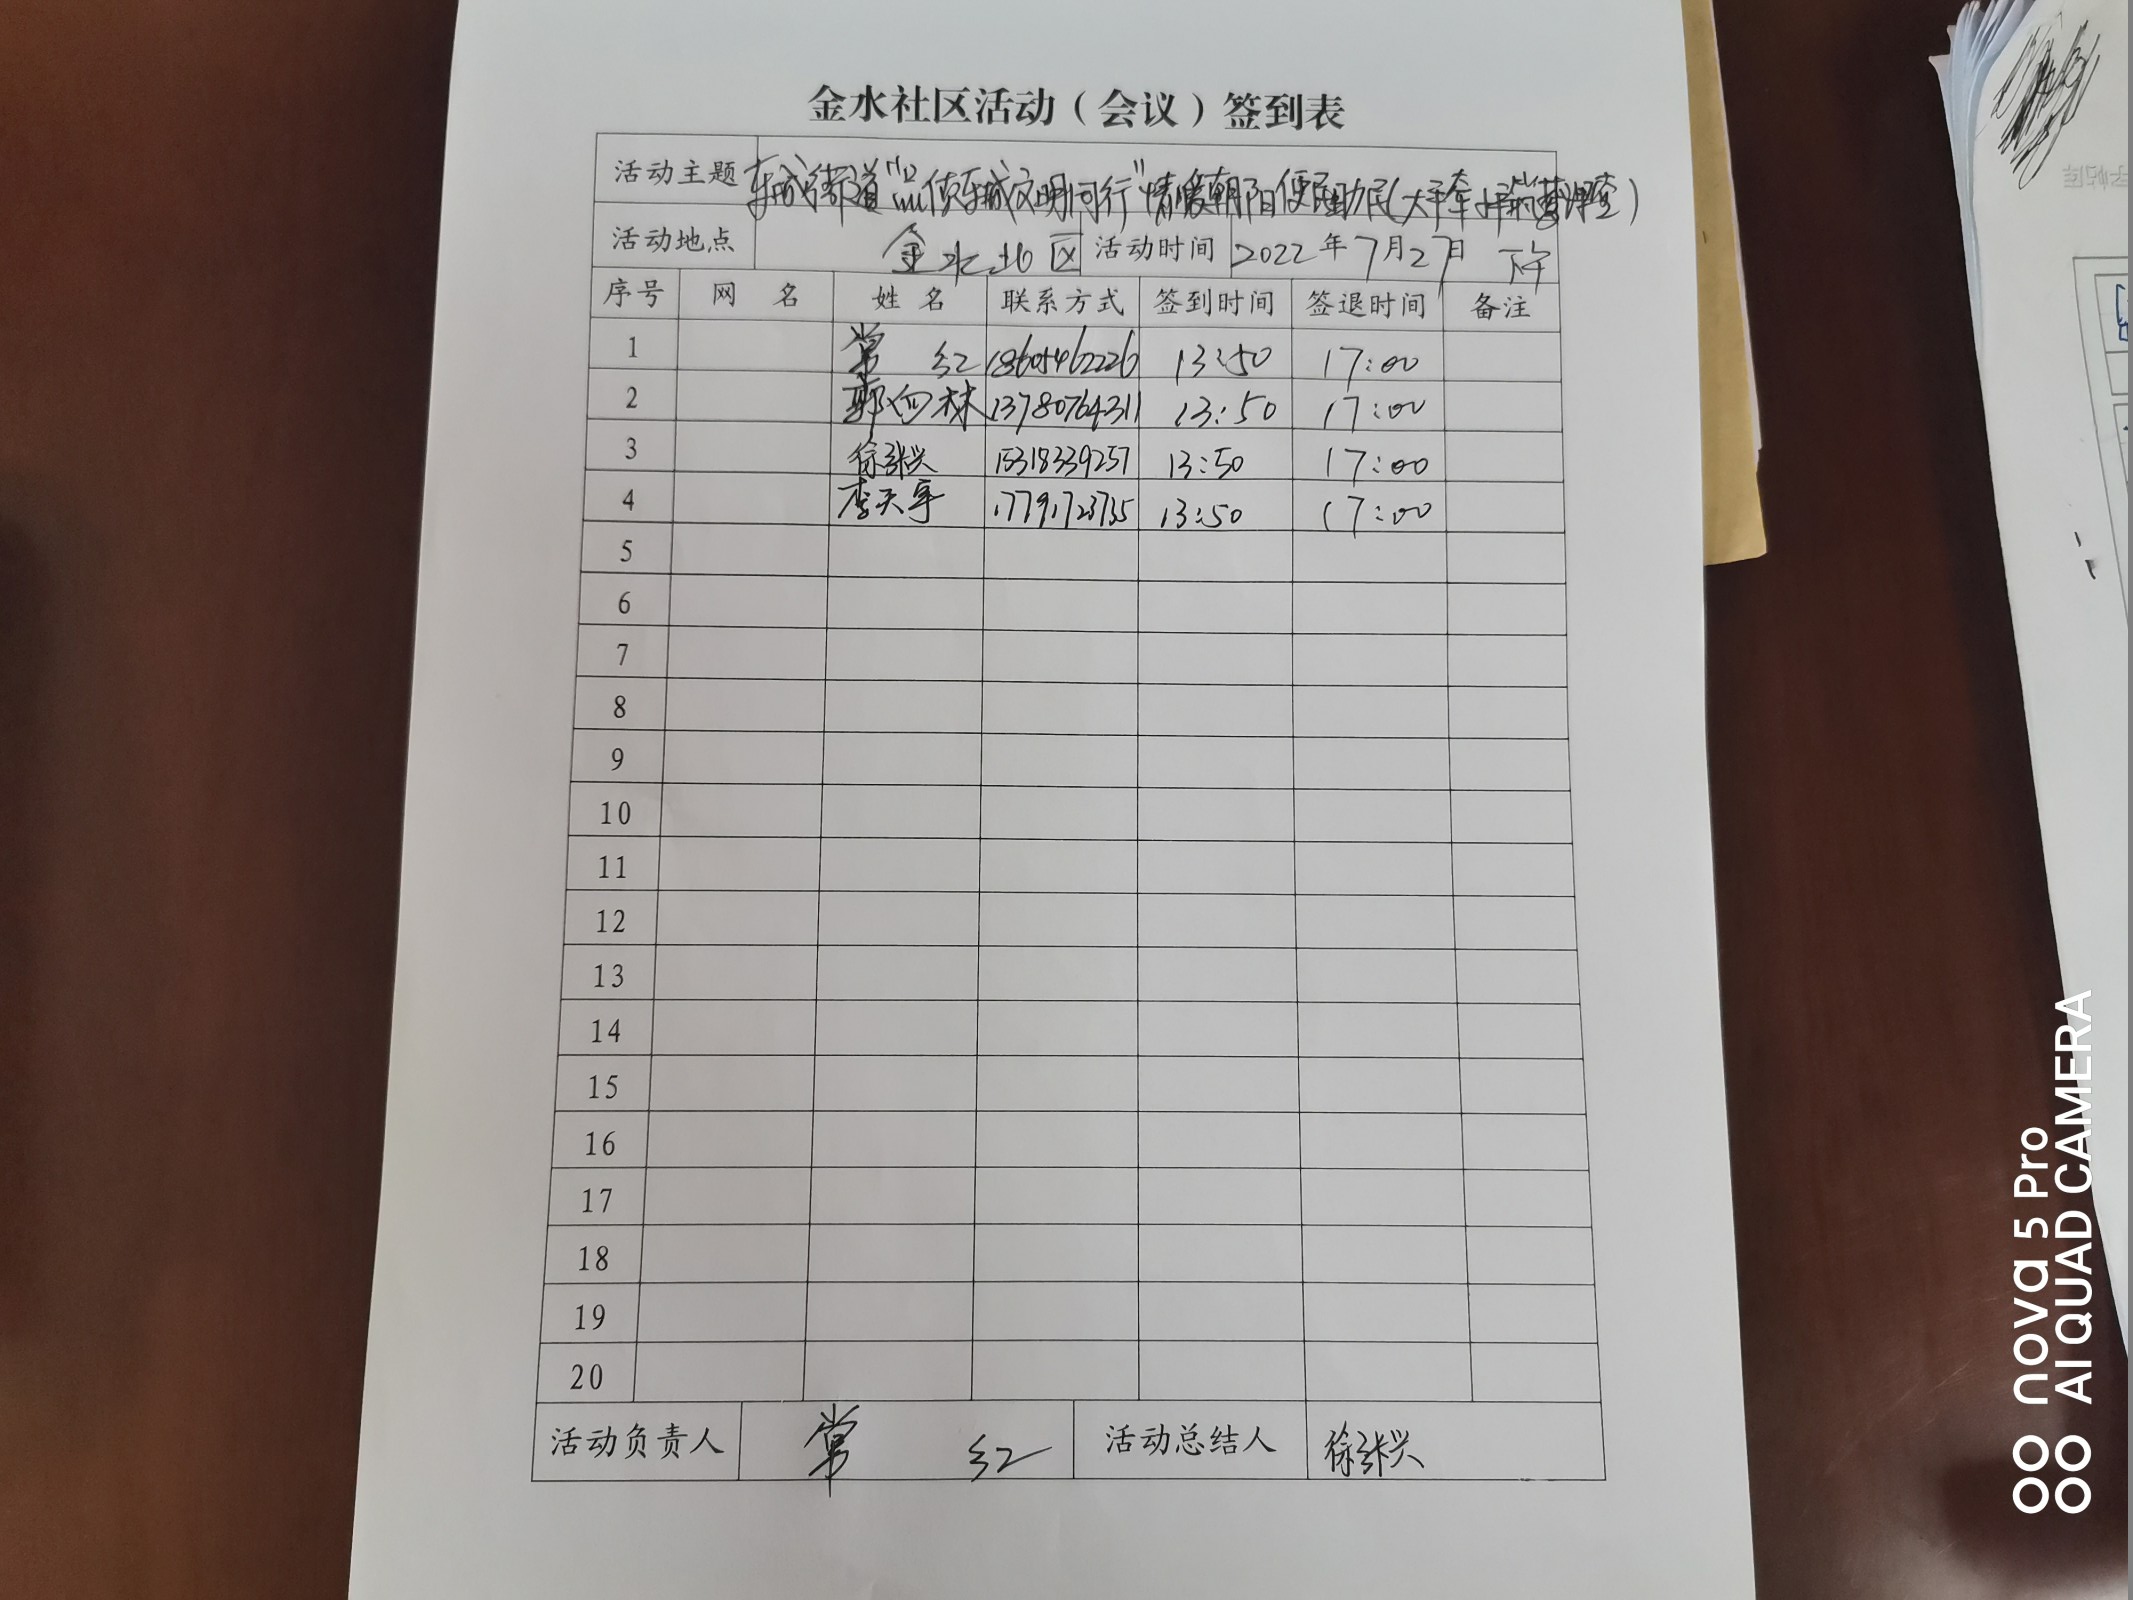 金水社区活动（会议）签到表
活动主题 东城街道"志愿东城文明同行"情暖朝阳便民助民(大手牵小手
活动地点 金水北区 活动时间 2022年7月27日 下午
序号 网 名 姓 名 联系方式 签到时间 签退时间 备注
1 常 红 18605462226 13:50 17:00
2 郭向林 13780764311 13:50 17:00
3 徐张兴 15318339257 13:50 17:00
4 李天宇 17791723735 13:50 17:00
5
6
7
8
9
10
11
12
13
14
15
16
17
18
19
20
活动负责人 常 红 活动总结人 徐张兴
nova 5 Pro
AI QUAD CAMERA